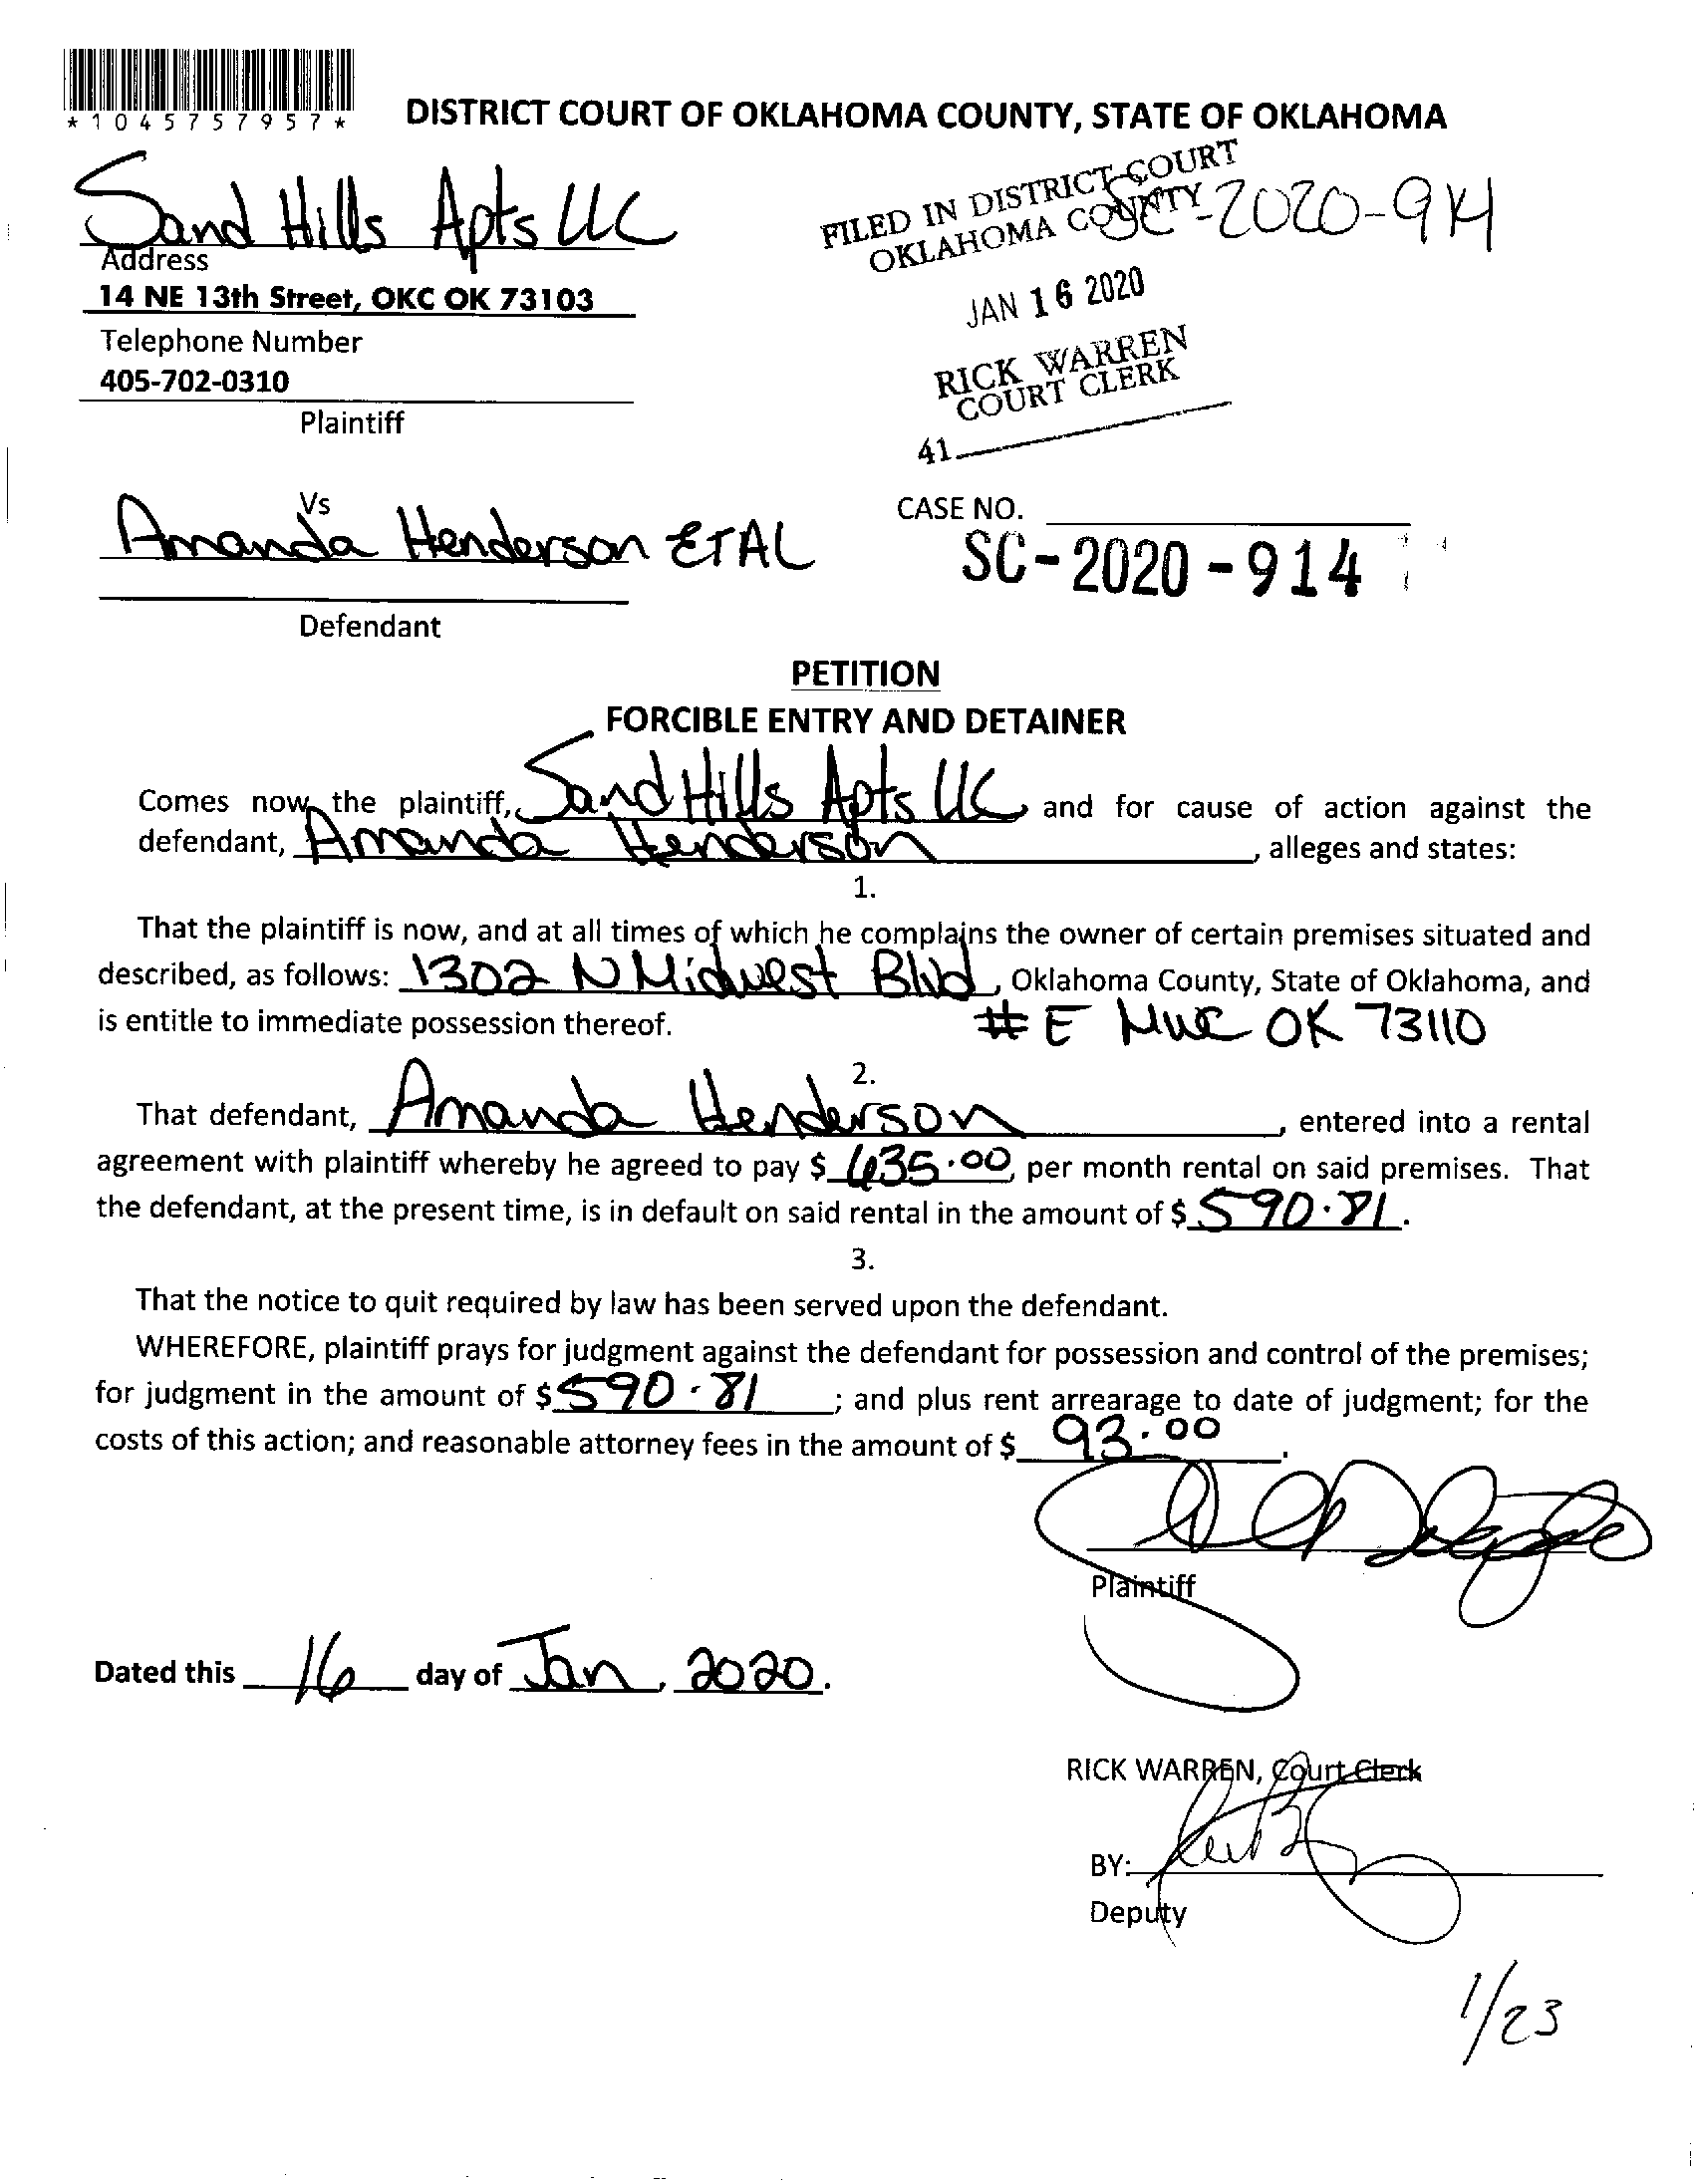 *1045757957*
DISTRICT COURT OF OKLAHOMA COUNTY, STATE OF OKLAHOMA
Sand Hills Apts LLC
FILED IN DISTRICT COURT
OKLAHOMA COUNTY
SC-2020-914
Address
14 NE 13th Street, OKC OK 73103
JAN 16 2020
Telephone Number
405-702-0310
RICK WARREN
COURT CLERK
Plaintiff
41
Vs
CASE NO.
Amanda Henderson ETAL
SC-2020-914
Defendant
PETITION
FORCIBLE ENTRY AND DETAINER
Comes now, the plaintiff, Sand Hills Apts LLC and for cause of action against the
defendant, Amanda Henderson, alleges and states:
1.
That the plaintiff is now, and at all times of which he complains the owner of certain premises situated and
described, as follows: 1302 N Midwest Blvd, Oklahoma County, State of Oklahoma, and
is entitle to immediate possession thereof. # E MWC OK 73110
2.
That defendant, Amanda Henderson, entered into a rental
agreement with plaintiff whereby he agreed to pay $ 635.00, per month rental on said premises. That
the defendant, at the present time, is in default on said rental in the amount of $ 590.81.
3.
That the notice to quit required by law has been served upon the defendant.
WHEREFORE, plaintiff prays for judgment against the defendant for possession and control of the premises;
for judgment in the amount of $ 590.81; and plus rent arrearage to date of judgment; for the
costs of this action; and reasonable attorney fees in the amount of $ 93.00.
Plaintiff
Dated this 16 day of Jan, 2020.
RICK WARREN, Court Clerk
BY:
Deputy
1/23